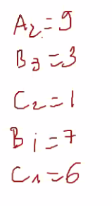 A₂=9
B₃=3
C₂=1
B i=7
C₁=6